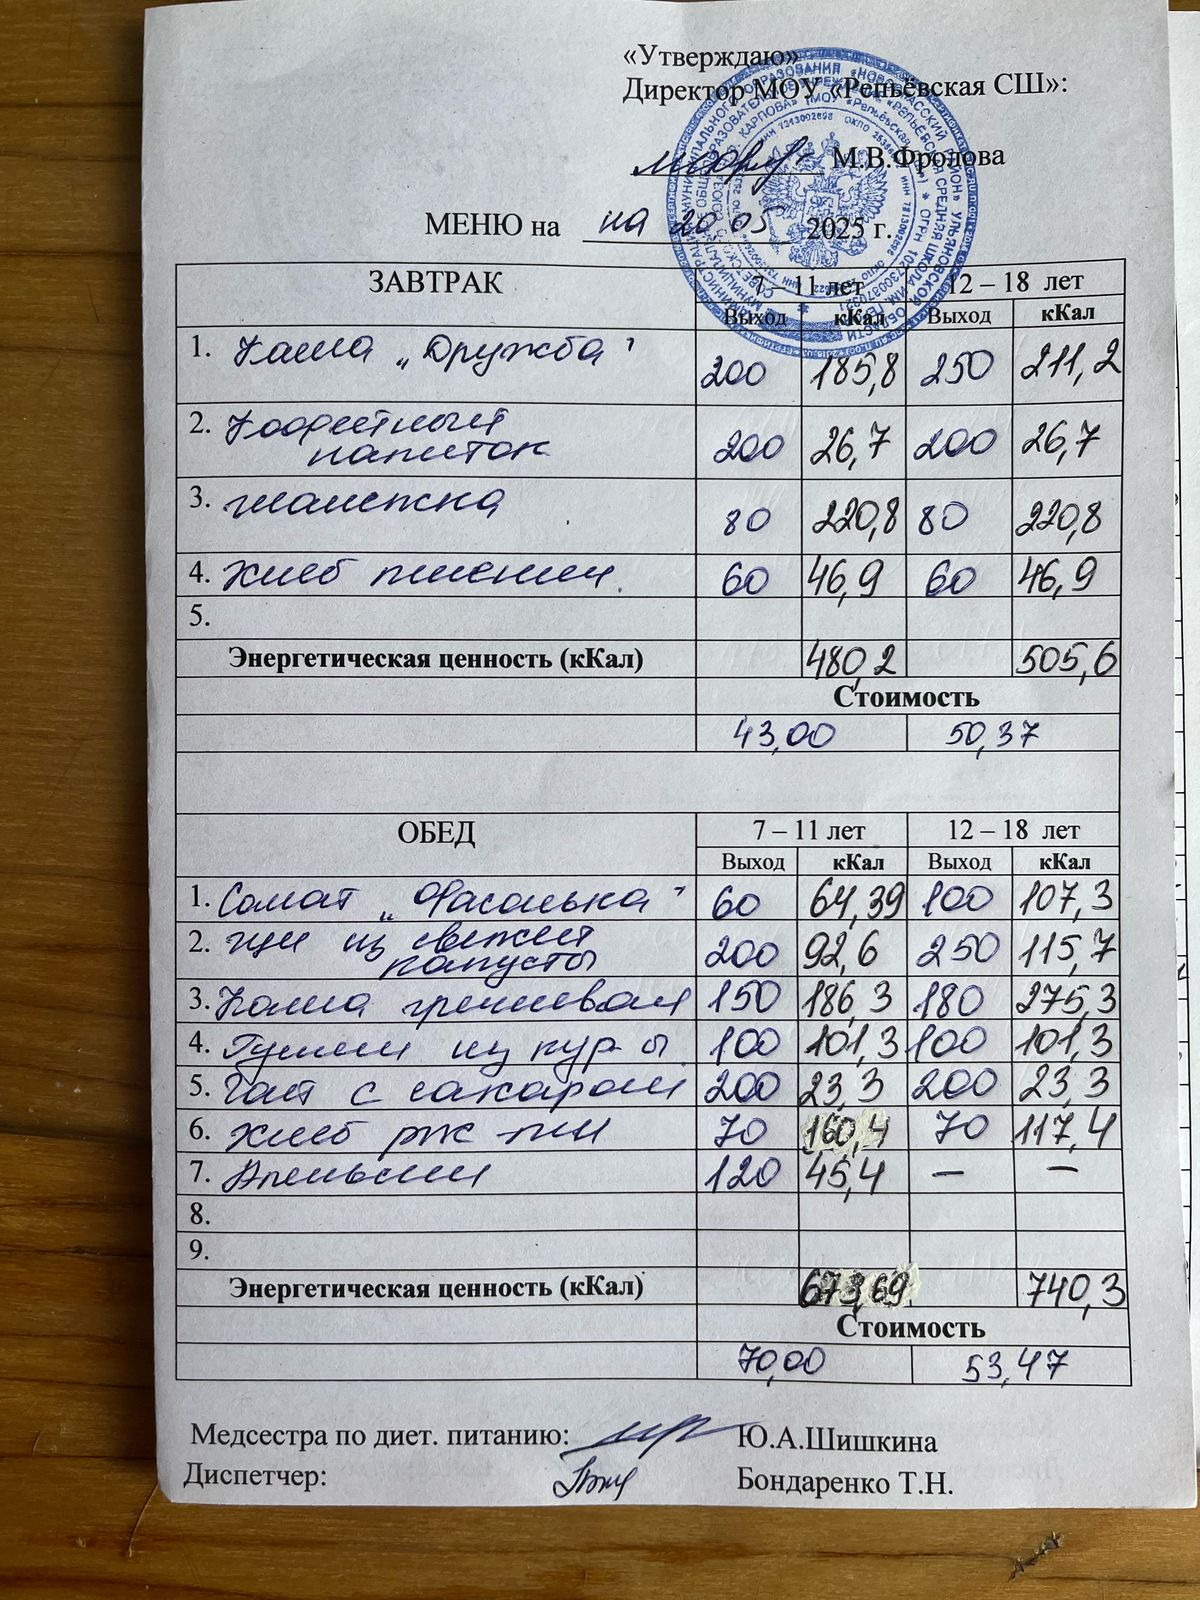 «Утверждаю»
Директор МОУ «Репьёвская СШ»:
М.В.Фролова
МЕНЮ на на 20 05 2025 г.
ЗАВТРАК 7 – 11 лет 12 – 18 лет
Выход кКал Выход кКал
1. Каша „Дружба" 200 185,8 250 211,2
2. Кофейный
напиток 200 26,7 200 26,7
3. манежка 80 220,8 80 220,8
4. Хлеб пшенич. 60 46,9 60 46,9
5.
Энергетическая ценность (кКал) 480,2 505,6
Стоимость
43,00 50,37
ОБЕД 7 – 11 лет 12 – 18 лет
Выход кКал Выход кКал
1. Салат „Фасолька" 60 64,39 100 107,3
2. Щи из свежей
капусты 200 92,6 250 115,7
3. Каша гречневая 150 186,3 180 275,3
4. Гуляш из кур-ы 100 101,3 100 101,3
5. Чай с сахаром 200 23,3 200 23,3
6. Хлеб рж-пш 70 160,4 70 117,4
7. Апельсин 120 45,4 – –
8.
9.
Энергетическая ценность (кКал) 673,69 740,3
Стоимость
70,00 53,47
Медсестра по диет. питанию: Ю.А.Шишкина
Диспетчер: Бондаренко Т.Н.